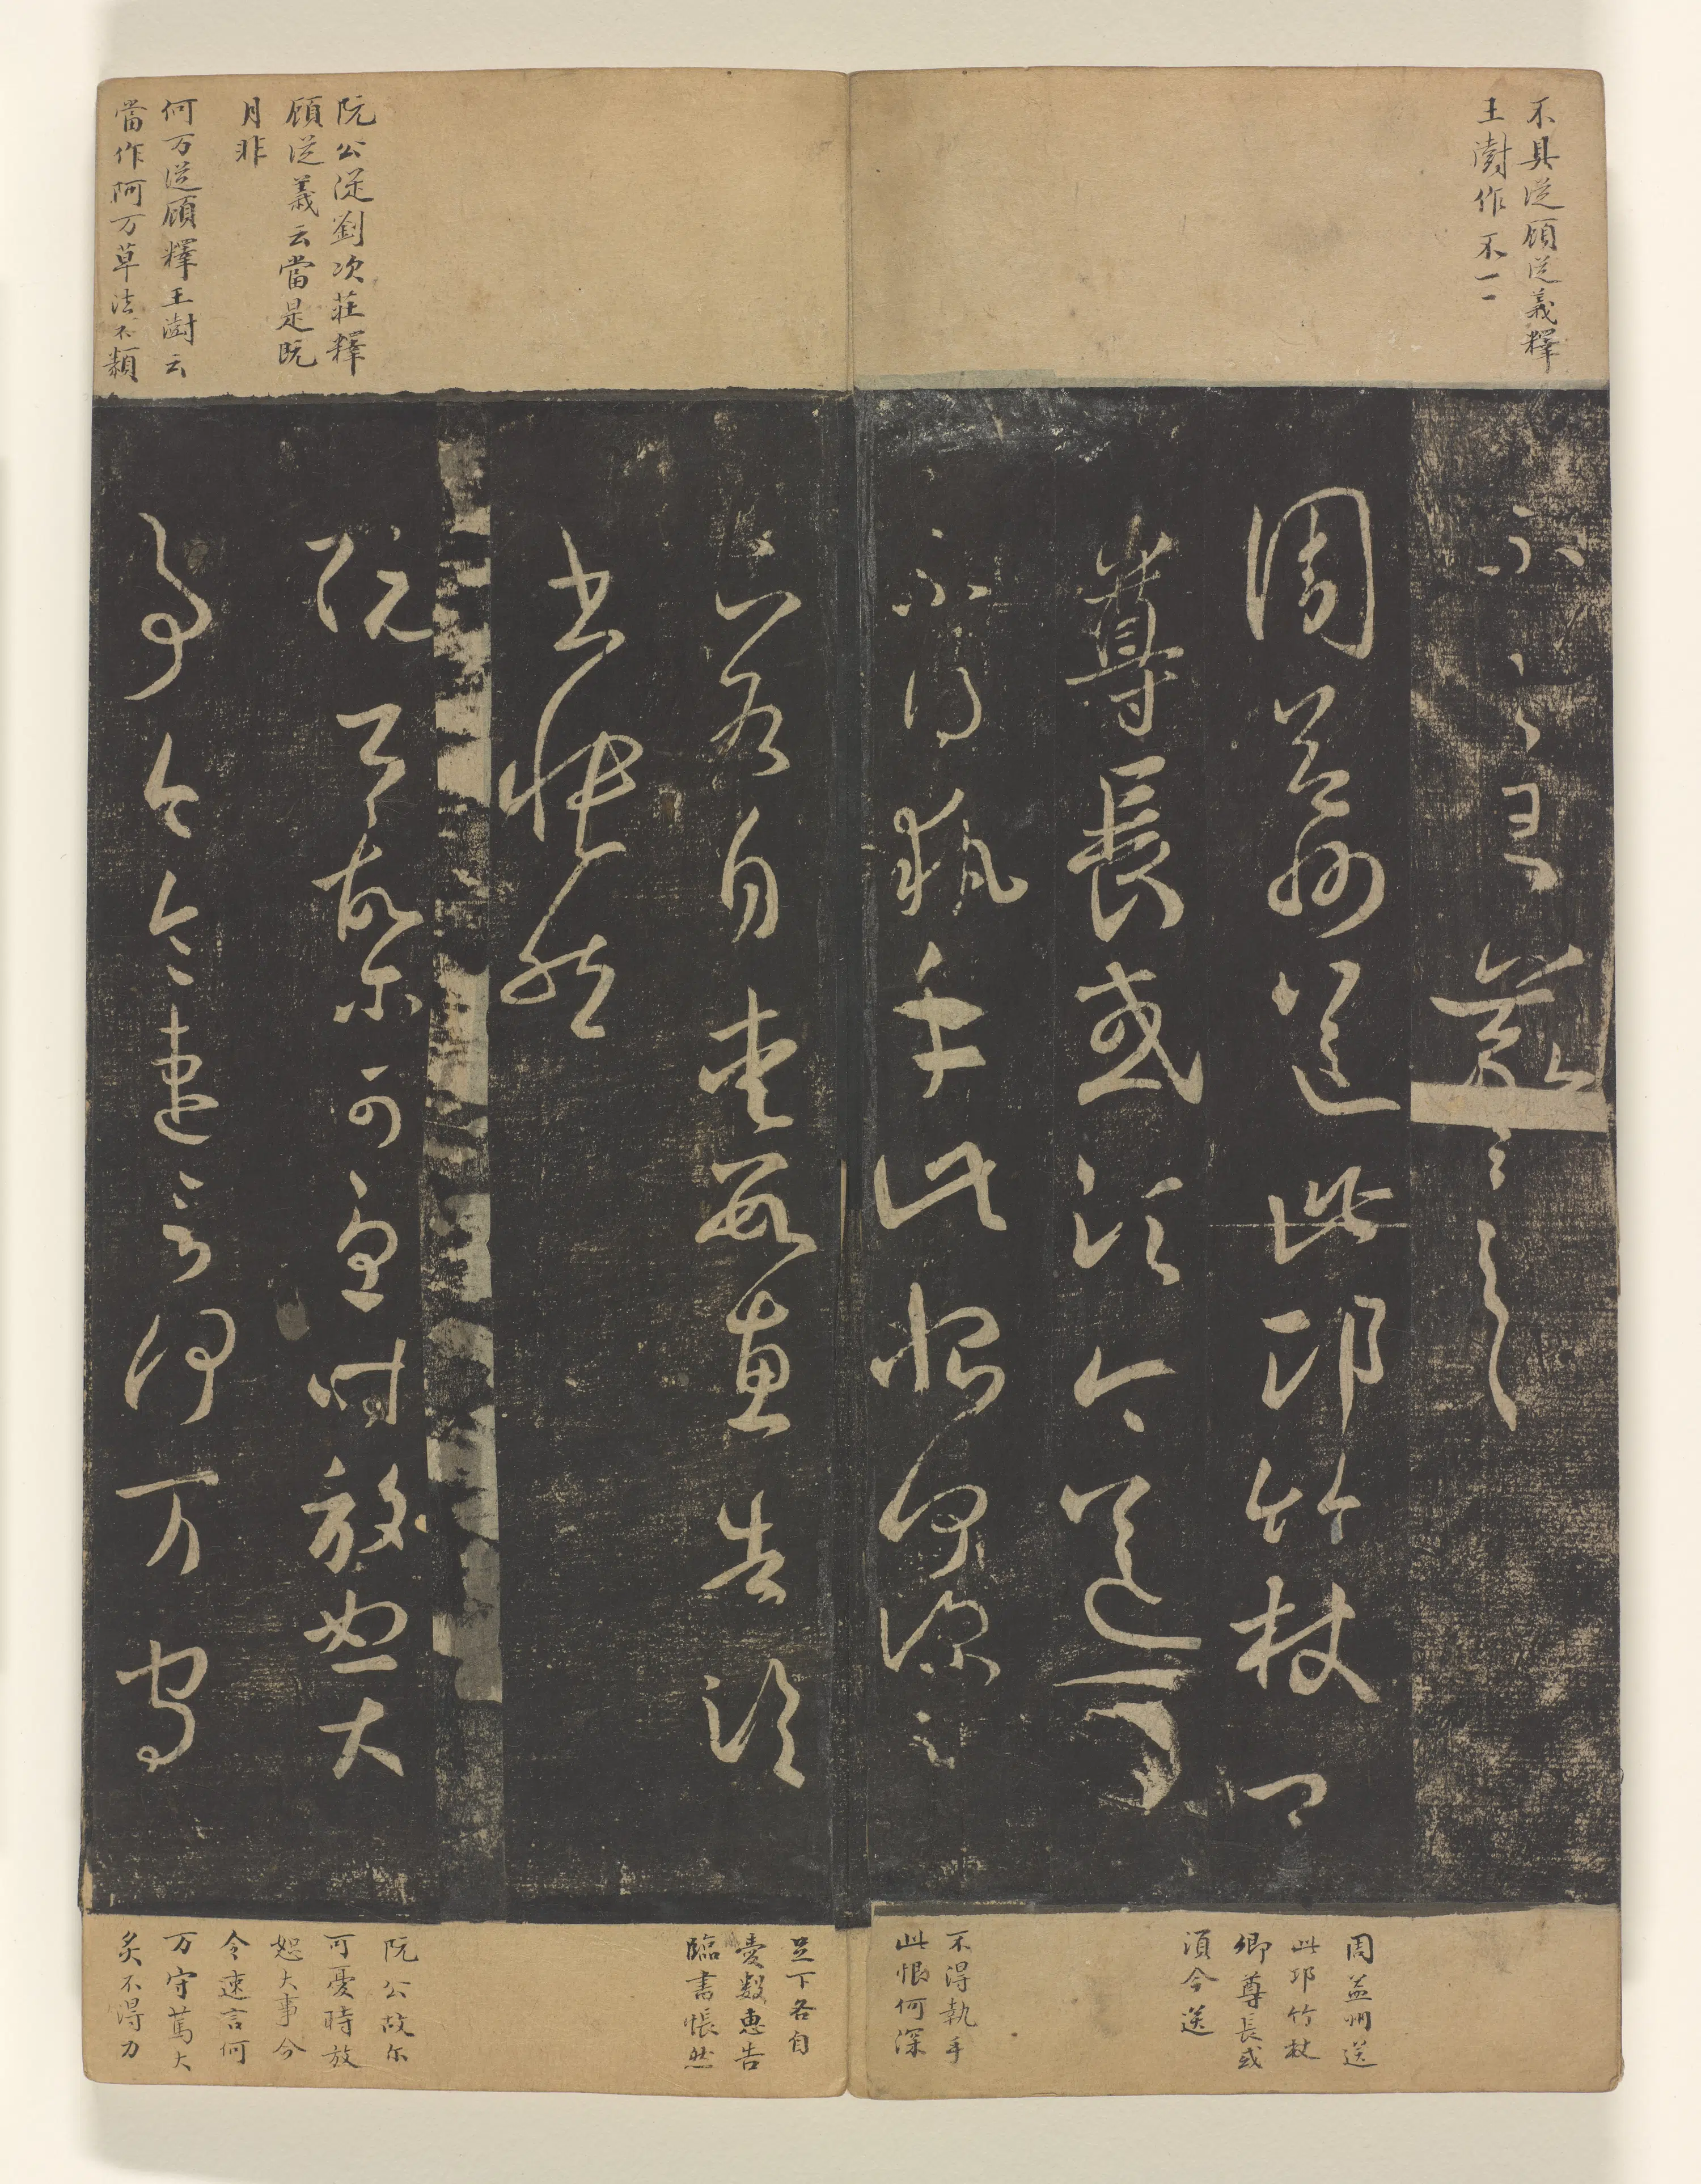 不具從顧從義釋
王澍作不一一
周益州送此邛竹杖卿
尊長或須今送
不得執手此恨何深足
下各自愛數惠告臨
書悵然
阮公故尔可憂時放恕大
事今令速言何万守
阮公從劉次莊釋
顧從義云當是阮
月非
何万從顧釋王澍云
當作阿万草法不類
周益州送
此邛竹杖
卿尊長或
須今送
不得執手
此恨何深
足下各自
愛數惠告
臨書悵然
阮公故尔
可憂時放
恕大事今
令速言何
万守篤大
炙不得力